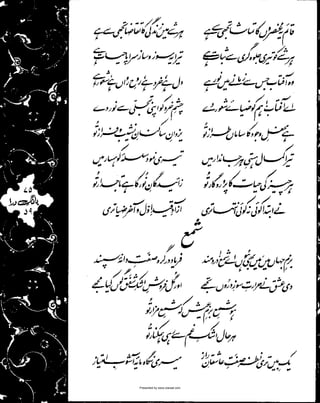 قائم یہ عنصروں کا تماشا تجھی سے ہے ہر شے میں زندگی کا تقاضا تجھی سے ہے
ہر شے کو تیری جلوہ گری سے ثبات ہے تیرا یہ سوز و ساز سراپا حیات ہے
وہ آفتاب جس سے زمانے میں نور ہے دل ہے، خرد ہے، روحِ رواں ہے، شعور ہے
اے آفتاب! ہم کو ضیائے شعور دے چشمِ خرد کو اپنی تجلی سے نور دے
ہے محفلِ وجود کا ساماں طراز تو یزدانِ ساکنانِ نشیب و فراز تو
تیرا کمال ہستیِ ہر جاندار میں تیری نمود سلسلۂ کوہسار میں
ہر چیز کی حیات کا پروردگار تو زائیدگانِ نور کا ہے تاجدار تو
نے ابتدا کوئی نہ کوئی انتہا تری آزادِ قیدِ اول و آخر ضیا تری
شمع
بزمِ جہاں میں میں بھی ہوں اے شمع! دردمند فریاد در گرہ صفتِ دانۂ سپند
دی عشق نے حرارتِ سوزِ دروں تجھے اور گل فروشِ اشکِ شفق گوں کیا مجھے
ہو شمعِ بزمِ عیش کہ شمعِ مزار تو
ہر حال اشکِ غم سے رہی ہمکنار تو
یک بیں تری نظر صفتِ عاشقانِ راز میری نگاہ مایۂ آشوبِ امتیاز
بانگِ درا